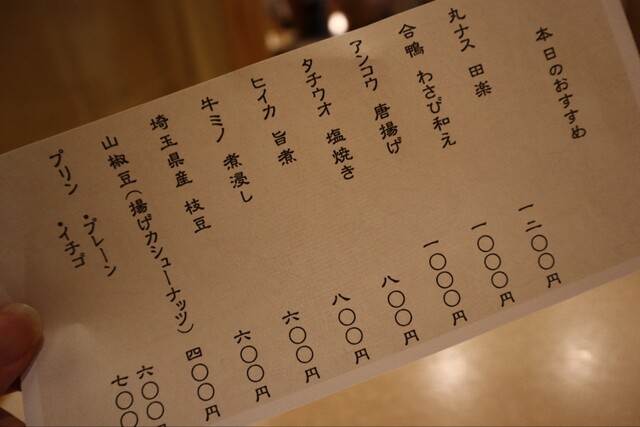 本日のおすすめ
丸ナス 田楽 一二〇〇円
合鴨 わさび和え 一〇〇〇円
アンコウ 唐揚げ 一〇〇〇円
タチウオ 塩焼き 八〇〇円
ヒイカ 旨煮 八〇〇円
牛ミノ 煮浸し 六〇〇円
埼玉県産 枝豆 六〇〇円
山椒豆(揚げカシューナッツ) 四〇〇円
プリン ・プレーン 六〇〇
・イチゴ 七〇〇